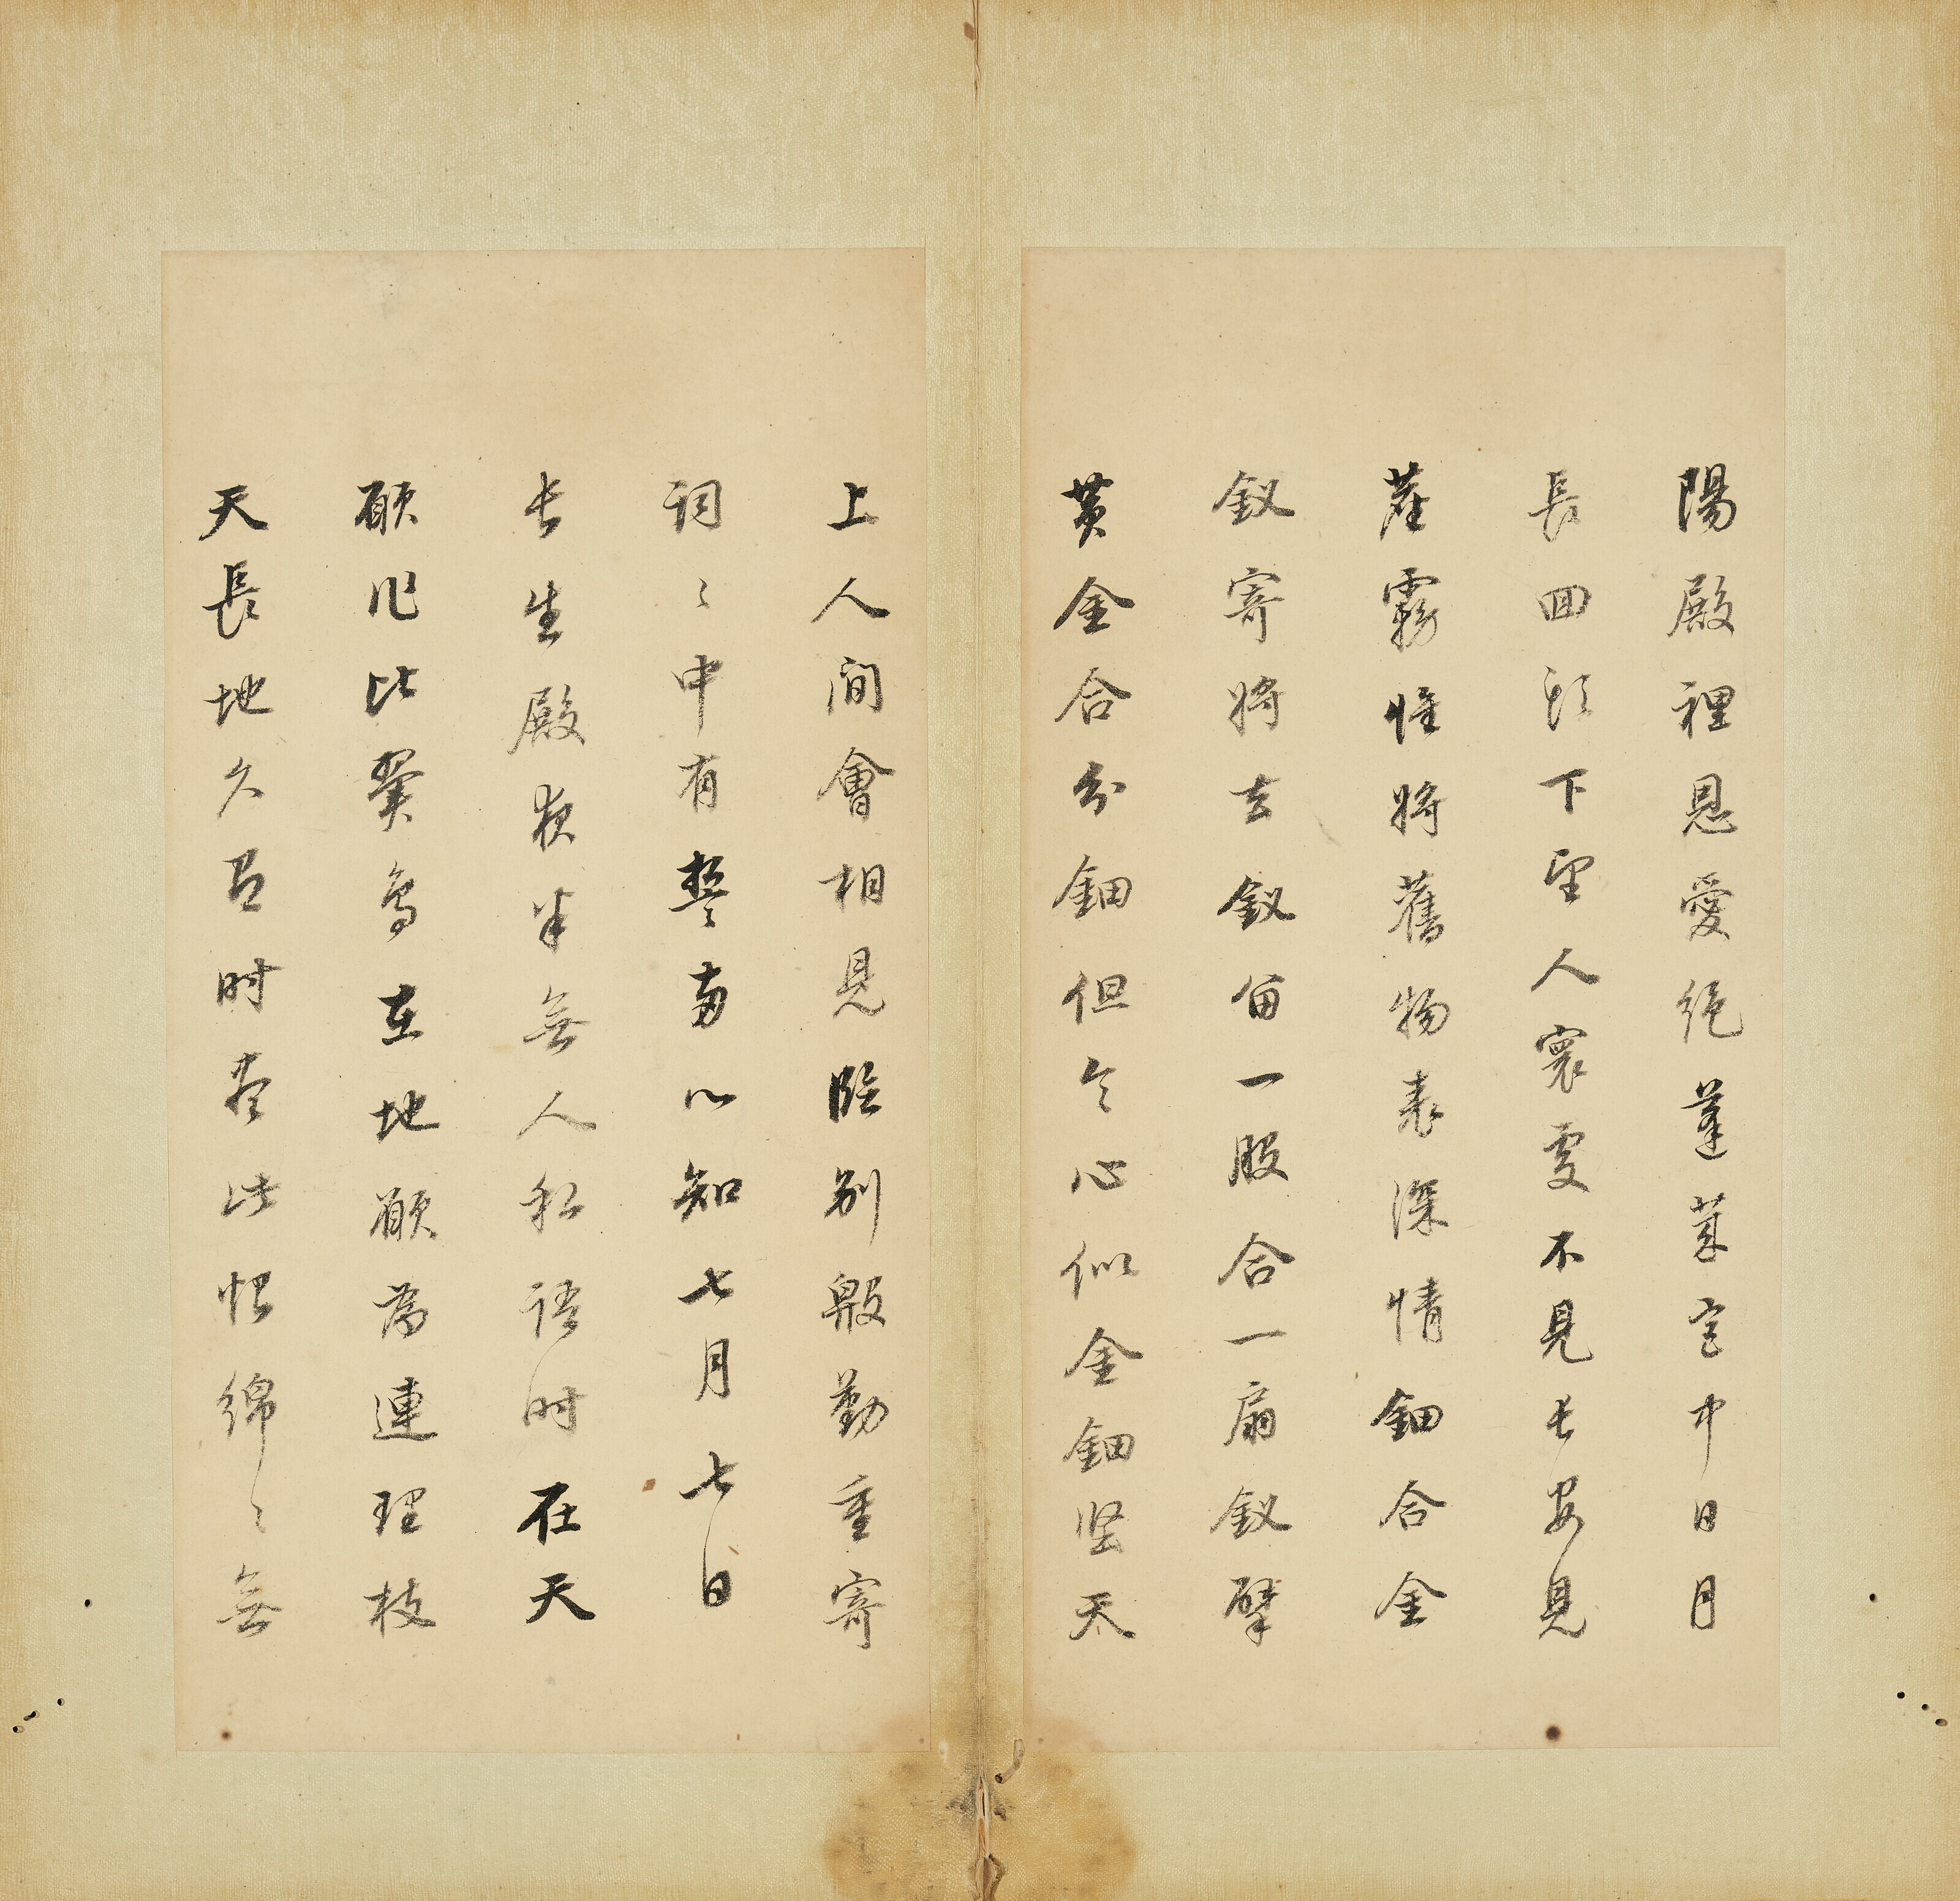 陽殿裡恩愛絕蓬萊宮中日月
長回頭下望人寰處不見長安見
塵霧惟將舊物表深情鈿合金
釵寄將去釵留一股合一扇釵擘
黃金合分鈿但令心似金鈿堅天
上人間會相見臨別殷勤重寄
詞〻中有誓兩心知七月七日
長生殿夜半無人私語時在天
願作比翼鳥在地願為連理枝
天長地久有時盡此恨綿〻無